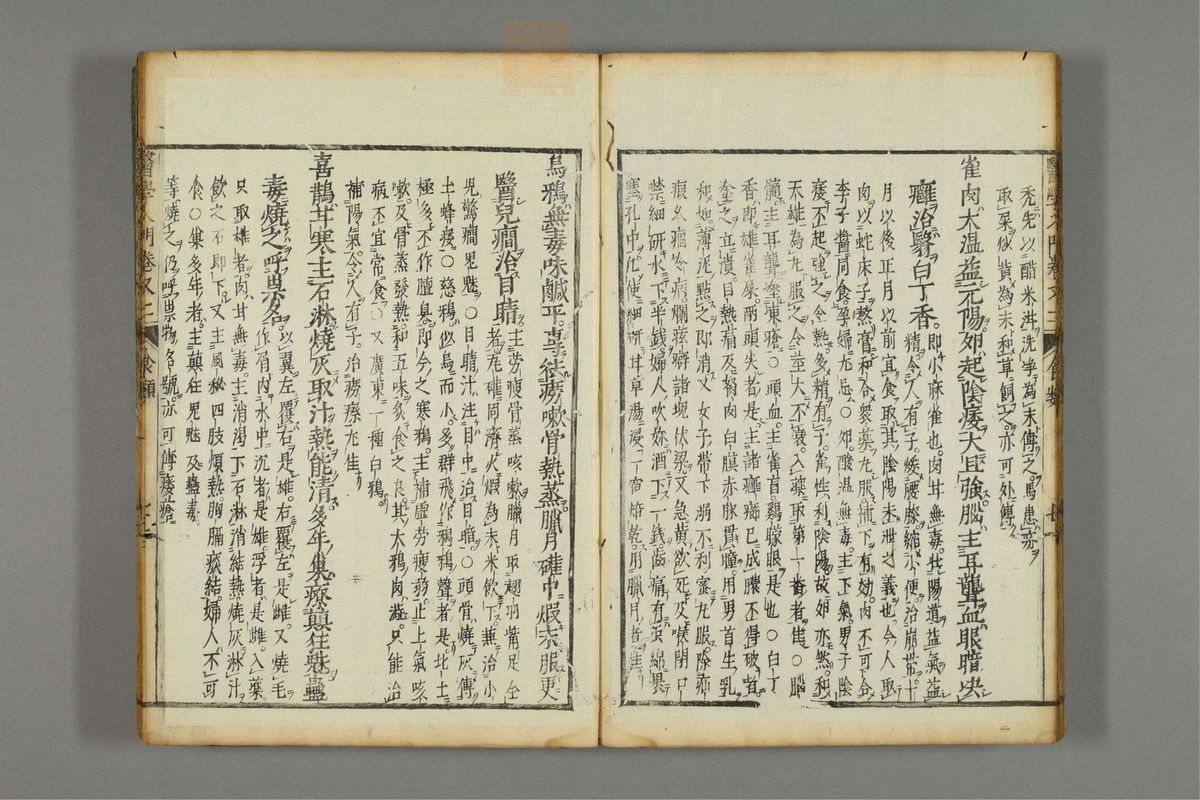 禿先以醋米泔洗净為末傅之馬患疥
取菜似黄為末和草飼之亦可外傅
雀肉大温益元陽卵起陰痿大且強腦主耳聾血眼暗决
癰治翳白丁香即小麻雀也肉甘無毒壯陽道益氣益
精令人有子煖腰膝縮小便治崩帶十
月以後正月以前宜食取其陰陽未泄之義也今人取
肉以蛇床子熬膏和合衆藥丸服補下有効肉不可合
李子醬同食孕婦尤忌○卵酸温無毒主下氣男子陰
痿不起強之令熱多精有子雀性利陰陽故卵亦然和
天雄為丸服之令莖大不衰入藥取第一番者佳○腦
髓主耳聾塗凍瘡○頭血主雀盲鷄矇眼是也○白丁
香即雄雀屎兩頭尖者是主諸癰癤已成膿不得破者
塗之立潰目熱痛及努肉白膜赤脉貫瞳用男首生乳
和如薄泥點之即消又女子帶下溺不利蜜丸服除疝
瘕久痼冷病爛痃癖諸塊伏梁又急黄欲死及喉閉口
禁細研水下半錢婦人吹妳酒下一錢齒痛有虫綿裹
塞孔中凡使細研甘草湯浸一宿焙乾用臘月者佳
烏鴉無毒味鹹平專祛癆嗽骨熱蒸臘月確中煅末服更
醫兒癇治目睛主勞瘦骨蒸咳嗽臘月取翅羽觜足全
者瓦確固濟火煅為末米飲下兼治小
兒驚癇鬼魅○目睛汁注目中治目暗○頭骨燒灰傅
土蜂瘻○慈鴉似烏而小多群飛作鴉鴉聲者是北土
極多不作膻臭即今之寒鴉主補虚勞瘦弱止上氣咳
嗽及骨蒸發熱和五味炙食之良其大鴉肉澁只能治
病不宜常食○又廣東一種白鴉
補陽氣令人有子治癆瘵尤佳
喜鵲甘寒主石淋燒灰取汁熱能清多年巢療顛狂魅蠱
毒燒之呼祟名以翼左覆右是雄右覆左是雌又燒毛
作屑内水中沉者是雄浮者是雌入藥
只取雄者肉甘無毒主消渴下石淋消結熱燒灰淋汁
飲之石即下又主風秘四肢煩熱胸膈痰結婦人不可
食○巢多年者主顛狂鬼魅及蠱毒
等燒之仍呼祟物名號亦可傅瘻瘡